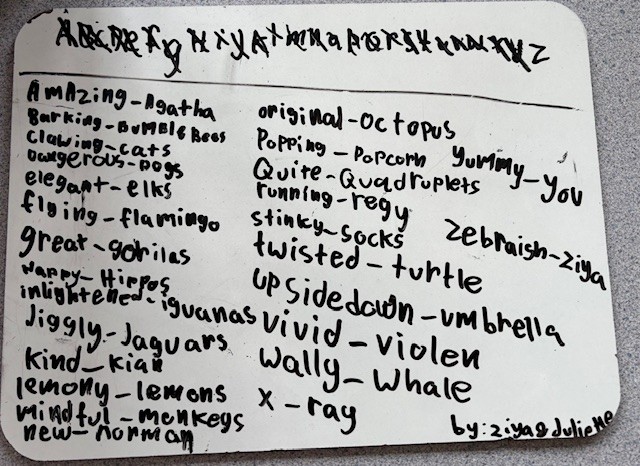 Amazing-Agatha
Barking-BumbleBees
Clawing-cats
Dangerous-Dogs
elegant-elks
flying-flamingo
great-gorilas
Happy-Hippos
inlightened-iguanas
Jiggly-Jaguars
kind-kian
lemony-lemons
mindful-monkeys
new-norman
original-octopus
Popping-Popcorn
Quite-Quadruplets
running-regy
stinky-socks
twisted-turtle
upsidedown-umbrella
vivid-violen
Wally-Whale
x-ray
Yummy-You
Zebraish-Ziya
by:ziya&Julienne